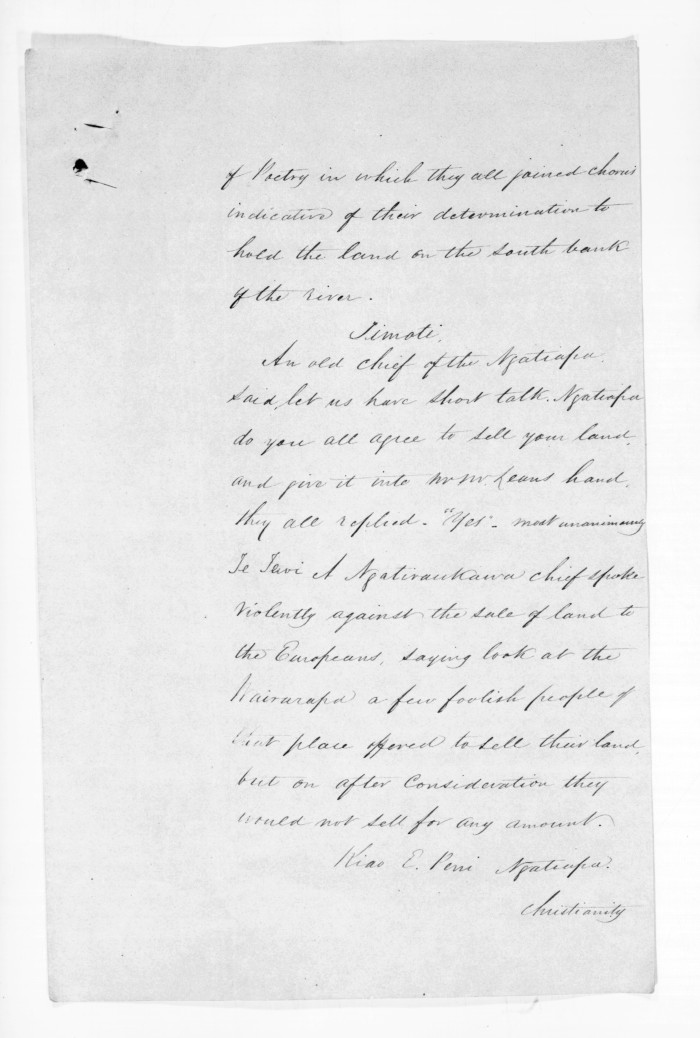 of Poetry in which they all joined chorus
indicative of their determination to
hold the land on the south bank
of the river.
Timoti.
An old chief of the Ngatiapa.
said, let us have short talk. Ngatiapa
do you all agree to sell your land,
and give it into Mr McLeans hand,
they all replied - "Yes" - most unanimously
Te A Ngatiraukawa chief spoke
violently against the sale of land to
the Europeans, saying look at the
Wairarapa a few foolish people of
that place offered to sell their land,
but on after consideration they
would not sell for any amount.
E. Ngatiapa.
Christianity